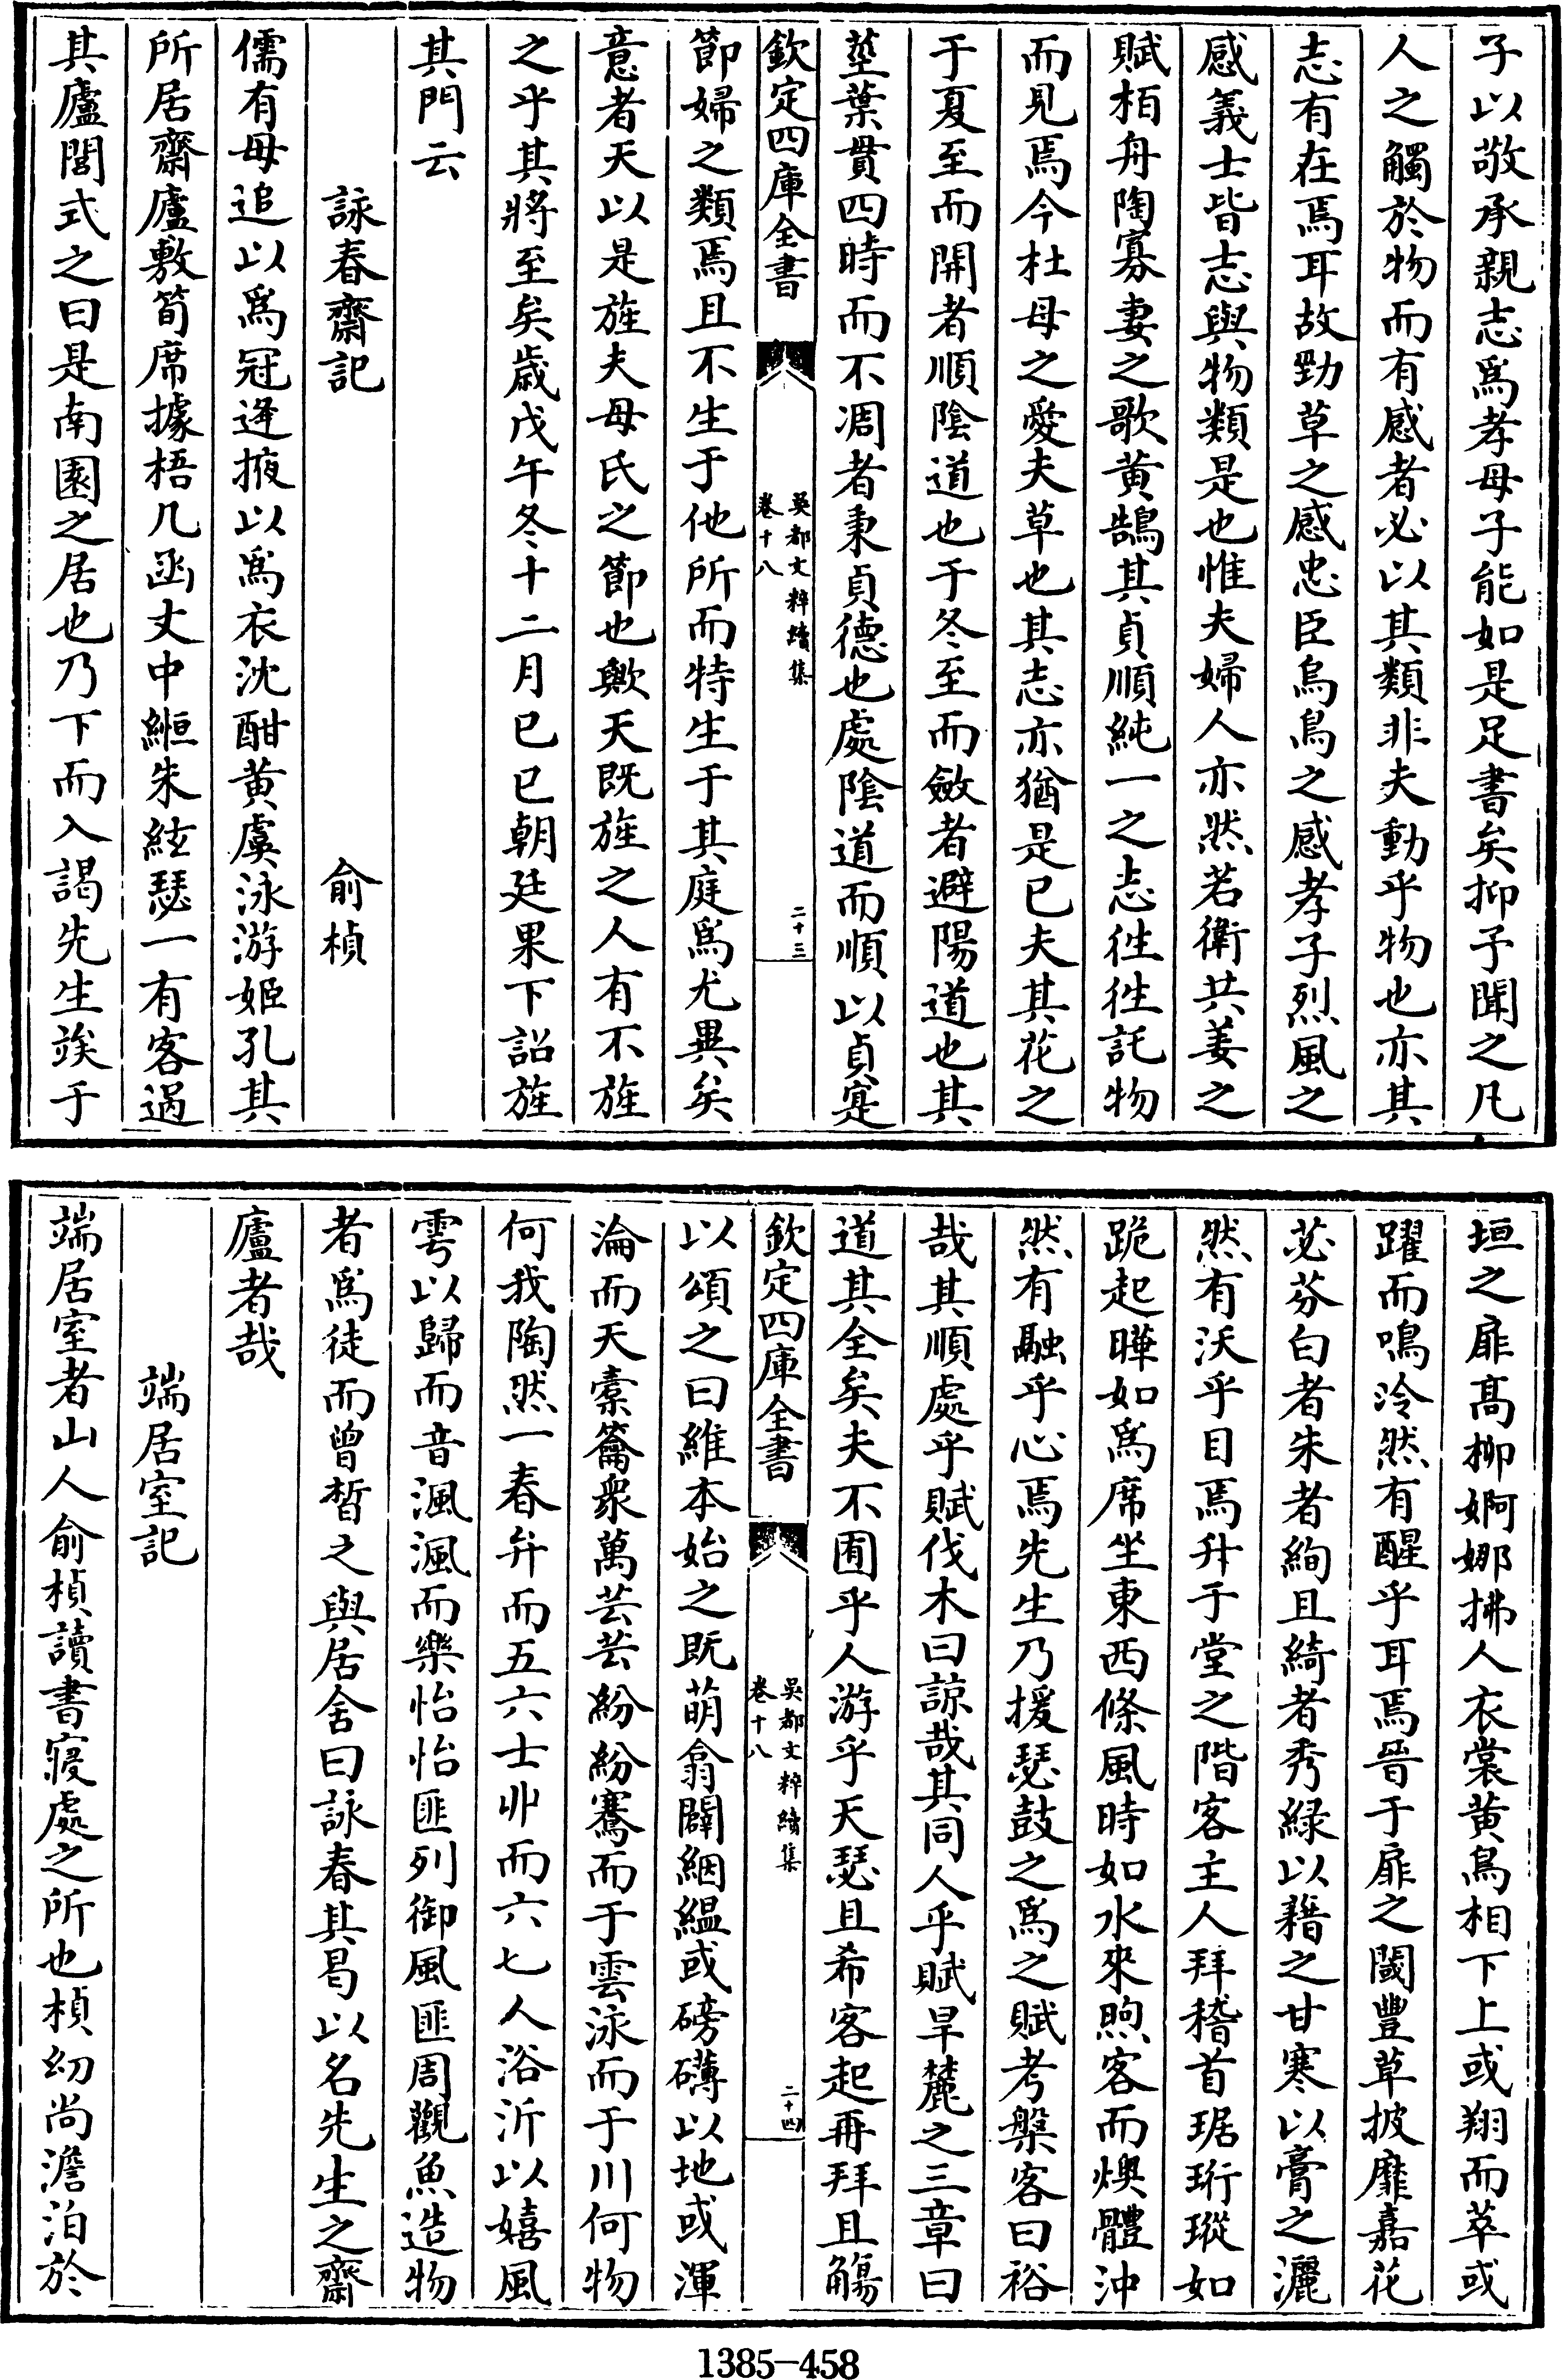 子以敬承親志爲孝母子能如是足書矣抑予聞之凡
人之觸於物而有感者必以其類非夫動乎物也亦其
志有在焉耳故勁草之感忠臣烏鳥之感孝子烈風之
感義士皆志與物類是也惟夫婦人亦然若衛共姜之
賦柏舟陶寡妻之歌黄鵠其貞順純一之志徃徃託物
而見焉今杜母之愛夫草也其志亦猶是已夫其花之
于夏至而開者順陰道也于冬至而斂者避陽道也其
莖葉貫四時而不凋者秉貞德也處陰道而順以貞寔
欽定四庫全書
吳都文粹續集
卷十八
二十三
節婦之類焉且不生于他所而特生于其庭爲尤異矣
意者天以是旌夫母氏之節也歟天既旌之人有不旌
之乎其將至矣歲戊午冬十二月已已朝廷果下詔旌
其門云
詠春齋記
俞楨
儒有母追以爲冠逢掖以爲衣沈酣黄虞泳游姬孔其
所居齋廬敷筍席據梧几函丈中緪朱絃瑟一有客過
其廬閭式之曰是南園之居也乃下而入謁先生竢于
垣之扉髙栁婀娜拂人衣裳黄鳥相下上或翔而萃或
躍而鳴泠然有醒乎耳焉晉于扉之閾豐草披靡嘉花
苾芬白者朱者絢且綺者秀緑以藉之甘寒以膏之灑
然有沃乎目焉升于堂之階客主人拜稽首琚珩瑽如
跪起曄如爲席坐東西條風時如水來煦客而燠體沖
然有融乎心焉先生乃援瑟鼓之爲之賦考槃客曰裕
哉其順處乎賦伐木曰諒哉其同人乎賦旱麓之三章曰
道其全矣夫不囿乎人游乎天瑟且希客起再拜且觴
欽定四庫全書
吳都文粹續集
卷十八
二十四
以頌之曰維本始之既萌翕闢絪緼或磅礴以地或渾
淪而天橐籥衆萬芸芸紛紛騫而于雲泳而于川何物
何我陶然一春弁而五六士丱而六七人浴沂以嬉風
雩以歸而音渢渢而樂怡怡匪列御風匪周觀魚造物
者爲徒而曾晳之與居舍曰詠春其曷以名先生之齋
廬者哉
端居室記
端居室者山人俞楨讀書寢處之所也楨幼尚澹泊於
1385-458